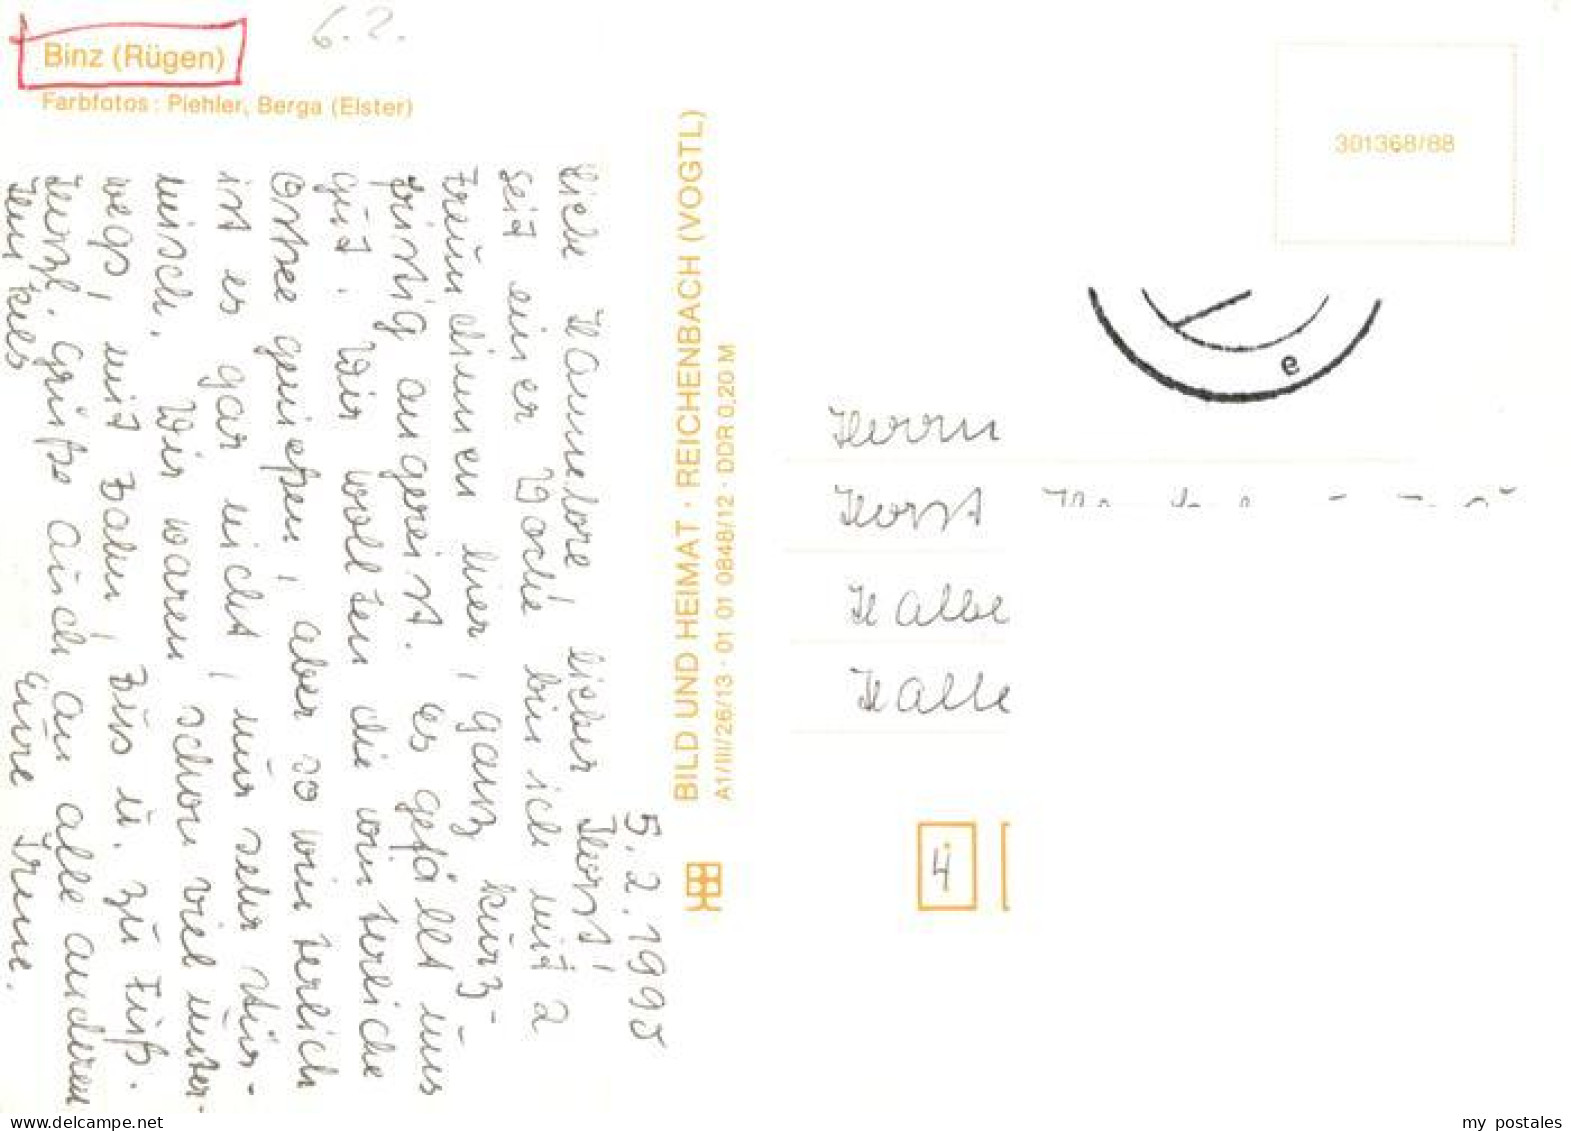 Binz (Rügen)
6.2.
Farbfotos: Piehler, Berga (Elster)
5.2.1990
Liebe Hannelore, lieber Horst!
Seit einer Woche bin ich mit 2
Freundinnen hier, ganz kurz-
fristig angereist. Es gefällt uns
gut. Wir wollten die winterliche
Ostsee genießen, aber so winterlich
ist es gar nicht, nur sehr stür-
misch. Wir waren schon viel unter-
wegs, mit Bahn, Bus u. zu Fuß.
Herzl. Grüße auch an alle anderen
Eure Irme.
BILD UND HEIMAT · REICHENBACH (VOGTL)
A1/III/26/13 · 01 01 0848/12 · DDR 0,20 M
301368/88
e
Herrn
Horst
Halle
4
my postales